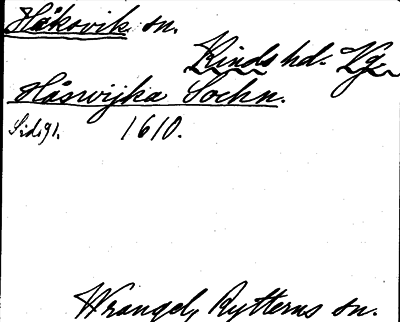 Håksvik sn.
Kinds hd. Vg.
Håswijka Sochn.
Sid. 91. 1610.
Wrangel, Rytterns sn.